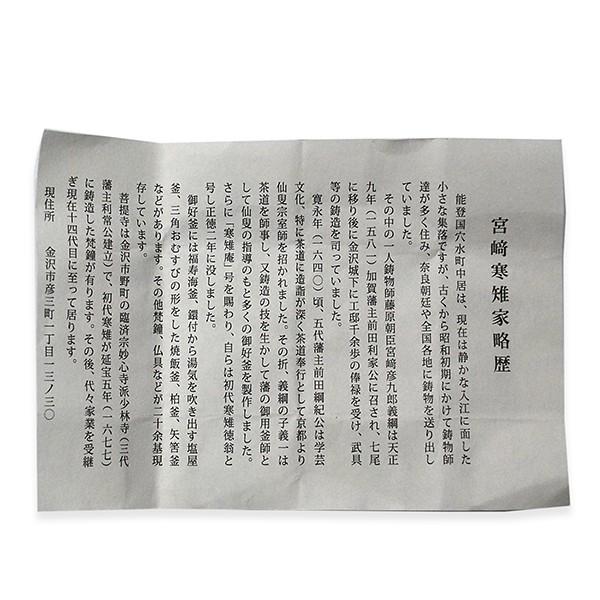 宮﨑寒雉家略歴
能登国穴水町中居は、現在は静かな入江に面した
小さな集落ですが、古くから昭和初期にかけて鋳物師
達が多く住み、奈良朝廷や全国各地に鋳物を送り出し
ていました。
その中の一人鋳物師藤原朝臣宮﨑彦九郎義綱は天正
九年（一五八一）加賀藩主前田利家公に召され、七尾
に移り後に金沢城下に工邸千余歩の俸禄を受け、武具
等の鋳造を司っていました。
寛永年（一六四〇）頃、五代藩主前田綱紀公は学芸
文化、特に茶道に造詣が深く茶道奉行として京都より
仙叟宗室師を招かれました。その折、義綱の子義一は
茶道を師事し、又鋳造の技を生かして藩の御用釜師と
して仙叟の指導のもと多くの御好釜を製作しました。
さらに「寒雉庵」号を賜わり、自らは初代寒雉徳翁と
号し正徳二年に没しました。
御好釜には福寿海釜、鐶付から湯気を吹き出す塩屋
釜、三角おむすびの形をした焼飯釜、柏釜、矢筈釜
などがあります。その他梵鐘、仏具などが二十余基現
存しています。
菩提寺は金沢市野町の臨済宗妙心寺派少林寺（三代
藩主利常公建立）で、初代寒雉が延宝五年（一六七七）
に鋳造した梵鐘が有ります。その後、代々家業を受継
ぎ現在十四代目に至って居ります。
現住所　金沢市彦三町一丁目一三ノ三〇